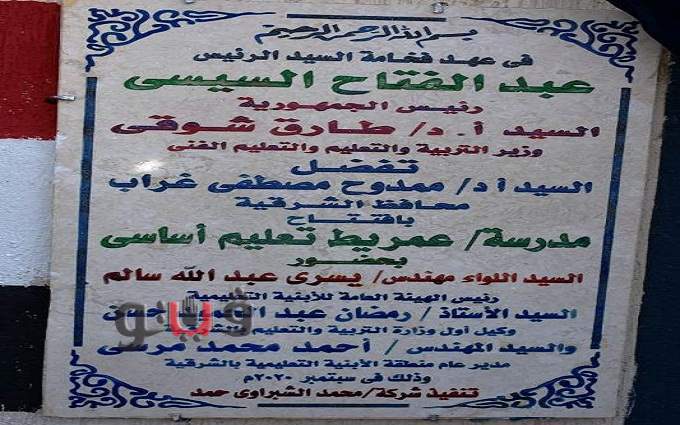 بسم الله الرحمن الرحيم
فى عهد فخامة السيد الرئيس
عبد الفتاح السيسى
رئيس الجمهورية
السيد أ.د/ طارق شوقى
وزير التربية والتعليم والتعليم الفنى
تفضل
السيد أ.د/ ممدوح مصطفى غراب
محافظ الشرقية
بافتتاح
مدرسة/ عمريط تعليم أساسى
بحضور
السيد اللواء مهندس/ يسرى عبد الله سالم
رئيس الهيئة العامة للأبنية التعليمية
السيد الأستاذ/ رمضان عبد الحميد حسن
وكيل أول وزارة التربية والتعليم بالشرقية
والسيد المهندس/ أحمد محمد مرسى
مدير عام منطقة الأبنية التعليمية بالشرقية
وذلك فى سبتمبر ٢٠٢٠م
تنفيذ شركة/ محمد الشبراوى حمد
ڤيتو